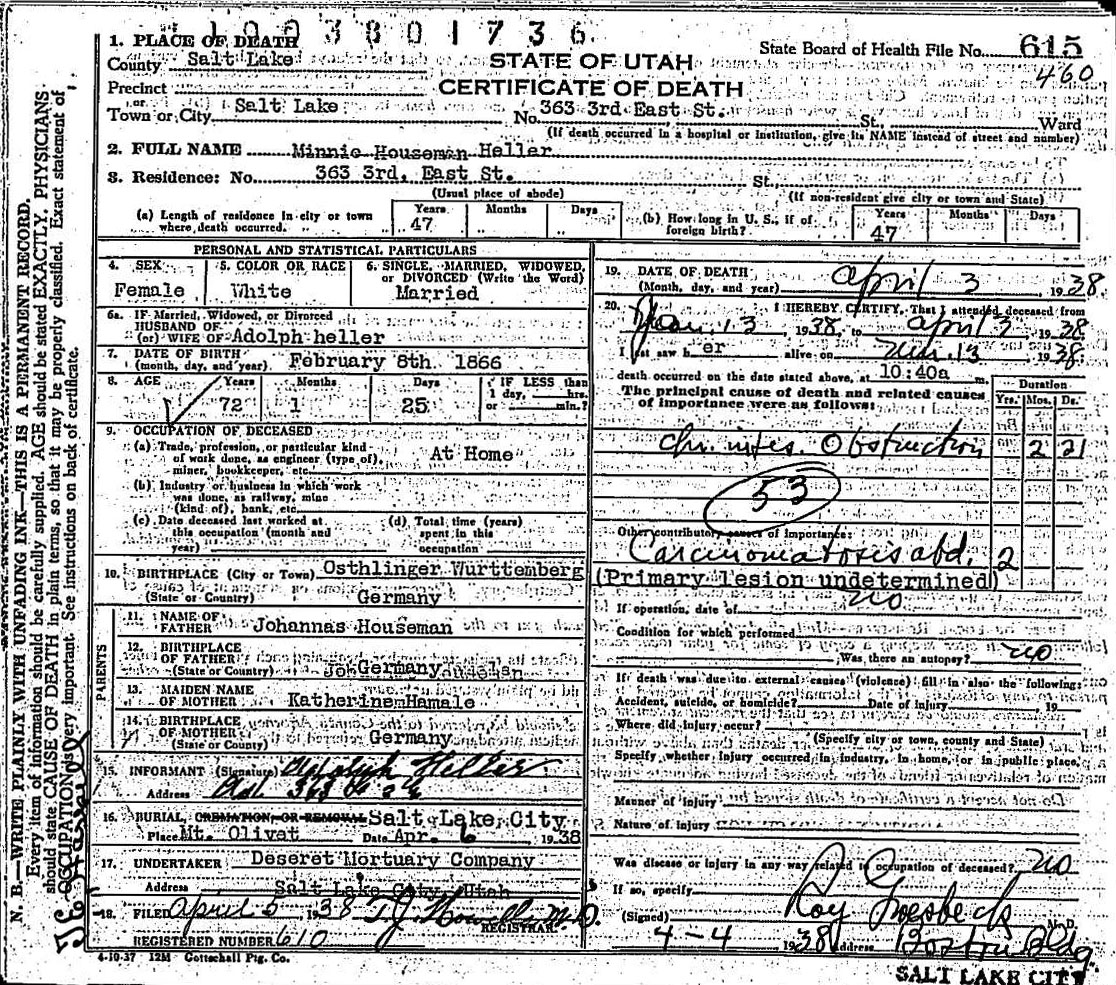 1003801736
1. PLACE OF DEATH
County Salt Lake
STATE OF UTAH
State Board of Health File No. 615
460
Precinct
CERTIFICATE OF DEATH
or
Town or City Salt Lake No. 363 3rd East St. St., Ward
(If death occurred in a hospital or institution, give its NAME instead of street and number)
2. FULL NAME Minnie Houseman Heller
3. Residence: No. 363 3rd. East St. St.,
(Usual place of abode) (If non-resident give city or town and State)
(a) Length of residence in city or town where death occurred. Years 47 Months Days
(b) How long in U. S., if of foreign birth? Years 47 Months Days
PERSONAL AND STATISTICAL PARTICULARS
4. SEX Female
5. COLOR OR RACE White
6. SINGLE, MARRIED, WIDOWED, or DIVORCED (Write the Word) Married
6a. IF Married, Widowed, or Divorced
HUSBAND OF
(or) WIFE OF Adolph heller
7. DATE OF BIRTH
(month, day, and year) February 8th. 1866
8. AGE Years 72 Months 1 Days 25 IF LESS than 1 day, hrs. or min.?
9. OCCUPATION OF DECEASED
(a) Trade, profession, or particular kind of work done, as engineer (type of), miner, bookkeeper, etc. At Home
(b) Industry or business in which work was done, as railway, mine (kind of), bank, etc.
(c) Date deceased last worked at this occupation (month and year)
(d) Total time (years) spent in this occupation
10. BIRTHPLACE (City or Town) Osthlinger Wurttemberg
(State or Country) Germany
PARENTS
11. NAME OF FATHER Johannas Houseman
12. BIRTHPLACE OF FATHER
(State or Country) Germany
13. MAIDEN NAME OF MOTHER Katherine Hamale
14. BIRTHPLACE OF MOTHER
(State or Country) Germany
15. INFORMANT (Signature) Adolph Heller
Address
16. BURIAL, CREMATION, OR REMOVAL Salt Lake City
Place Mt. Olivet Date Apr. 6 1938
17. UNDERTAKER Deseret Mortuary Company
Address Salt Lake City, Utah
18. FILED April 5 1938 T. J. Howells M.D.
REGISTRAR
REGISTERED NUMBER 610
4-10-37 12M Gottschall Ptg. Co.
19. DATE OF DEATH
(Month, day, and year) April 3, 1938.
20. I HEREBY CERTIFY, That I attended deceased from
Jan. 13 1938, to April 3 1938
I last saw her alive on 13 1938.
death occurred on the date stated above, at 10:40a m.
The principal cause of death and related causes of importance were as follows:
Duration
Yrs. Mos. Ds.
Chr. intes. Obstruction 2 21
53
Other contributory causes of importance:
Carcinomatosis abd. 2
(Primary lesion undetermined)
If operation, date of no
Condition for which performed
Was there an autopsy? no
If death was due to external causes (violence) fill in also the following:
Accident, suicide, or homicide? Date of injury 19
Where did injury occur?
(Specify city or town, county and State)
Specify whether injury occurred in industry, in home, or in public place.
Manner of injury
Nature of injury
Was disease or injury in any way related to occupation of deceased? no
If so, specify
(Signed) Roy Groesbeck M. D.
4-4 1938 Address Boston Bldg
SALT LAKE CITY
N. B.—WRITE PLAINLY WITH UNFADING INK—THIS IS A PERMANENT RECORD.
Every item of information should be carefully supplied. AGE should be stated EXACTLY. PHYSICIANS
should state CAUSE OF DEATH in plain terms, so that it may be properly classified. Exact statement of
OCCUPATION is very important. See instructions on back of certificate.